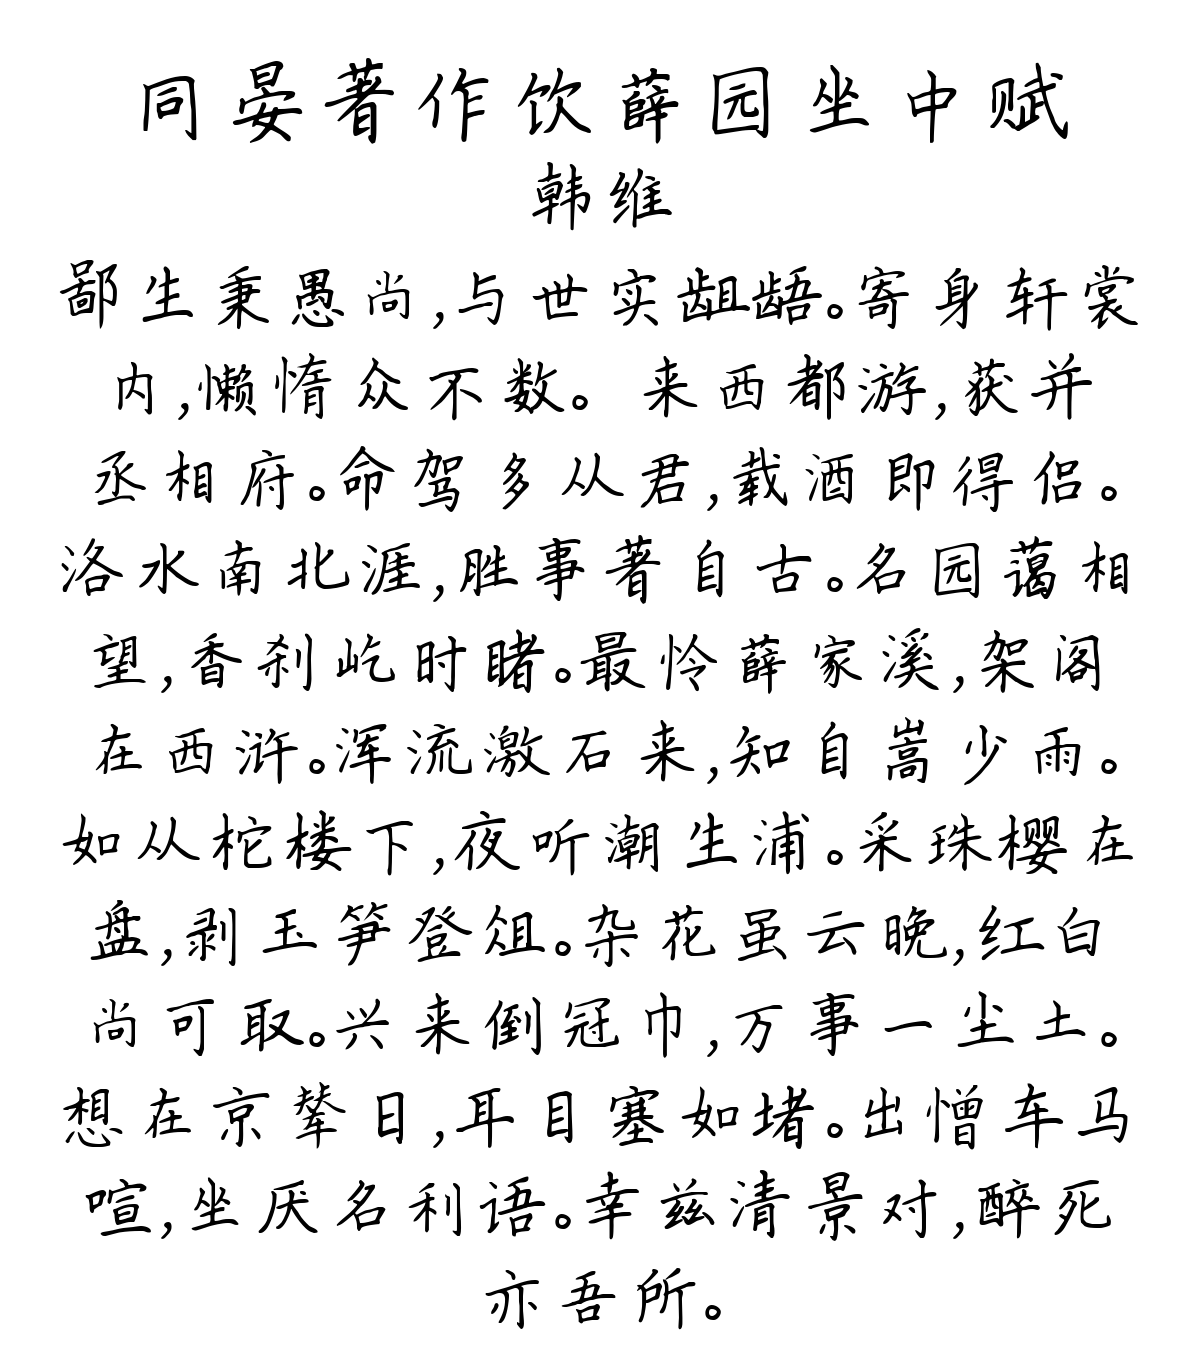 同晏著作饮薛园坐中赋
韩维
鄙生秉愚尚,与世实龃龉。寄身轩裳
内,懒惰众不数。 来西都游,获并
丞相府。命驾多从君,载酒即得侣。
洛水南北涯,胜事著自古。名园蔼相
望,香刹屹时睹。最怜薛家溪,架阁
在西浒。浑流激石来,知自嵩少雨。
如从柁楼下,夜听潮生浦。采珠樱在
盘,剥玉笋登俎。杂花虽云晚,红白
尚可取。兴来倒冠巾,万事一尘土。
想在京辇日,耳目塞如堵。出憎车马
喧,坐厌名利语。幸兹清景对,醉死
亦吾所。